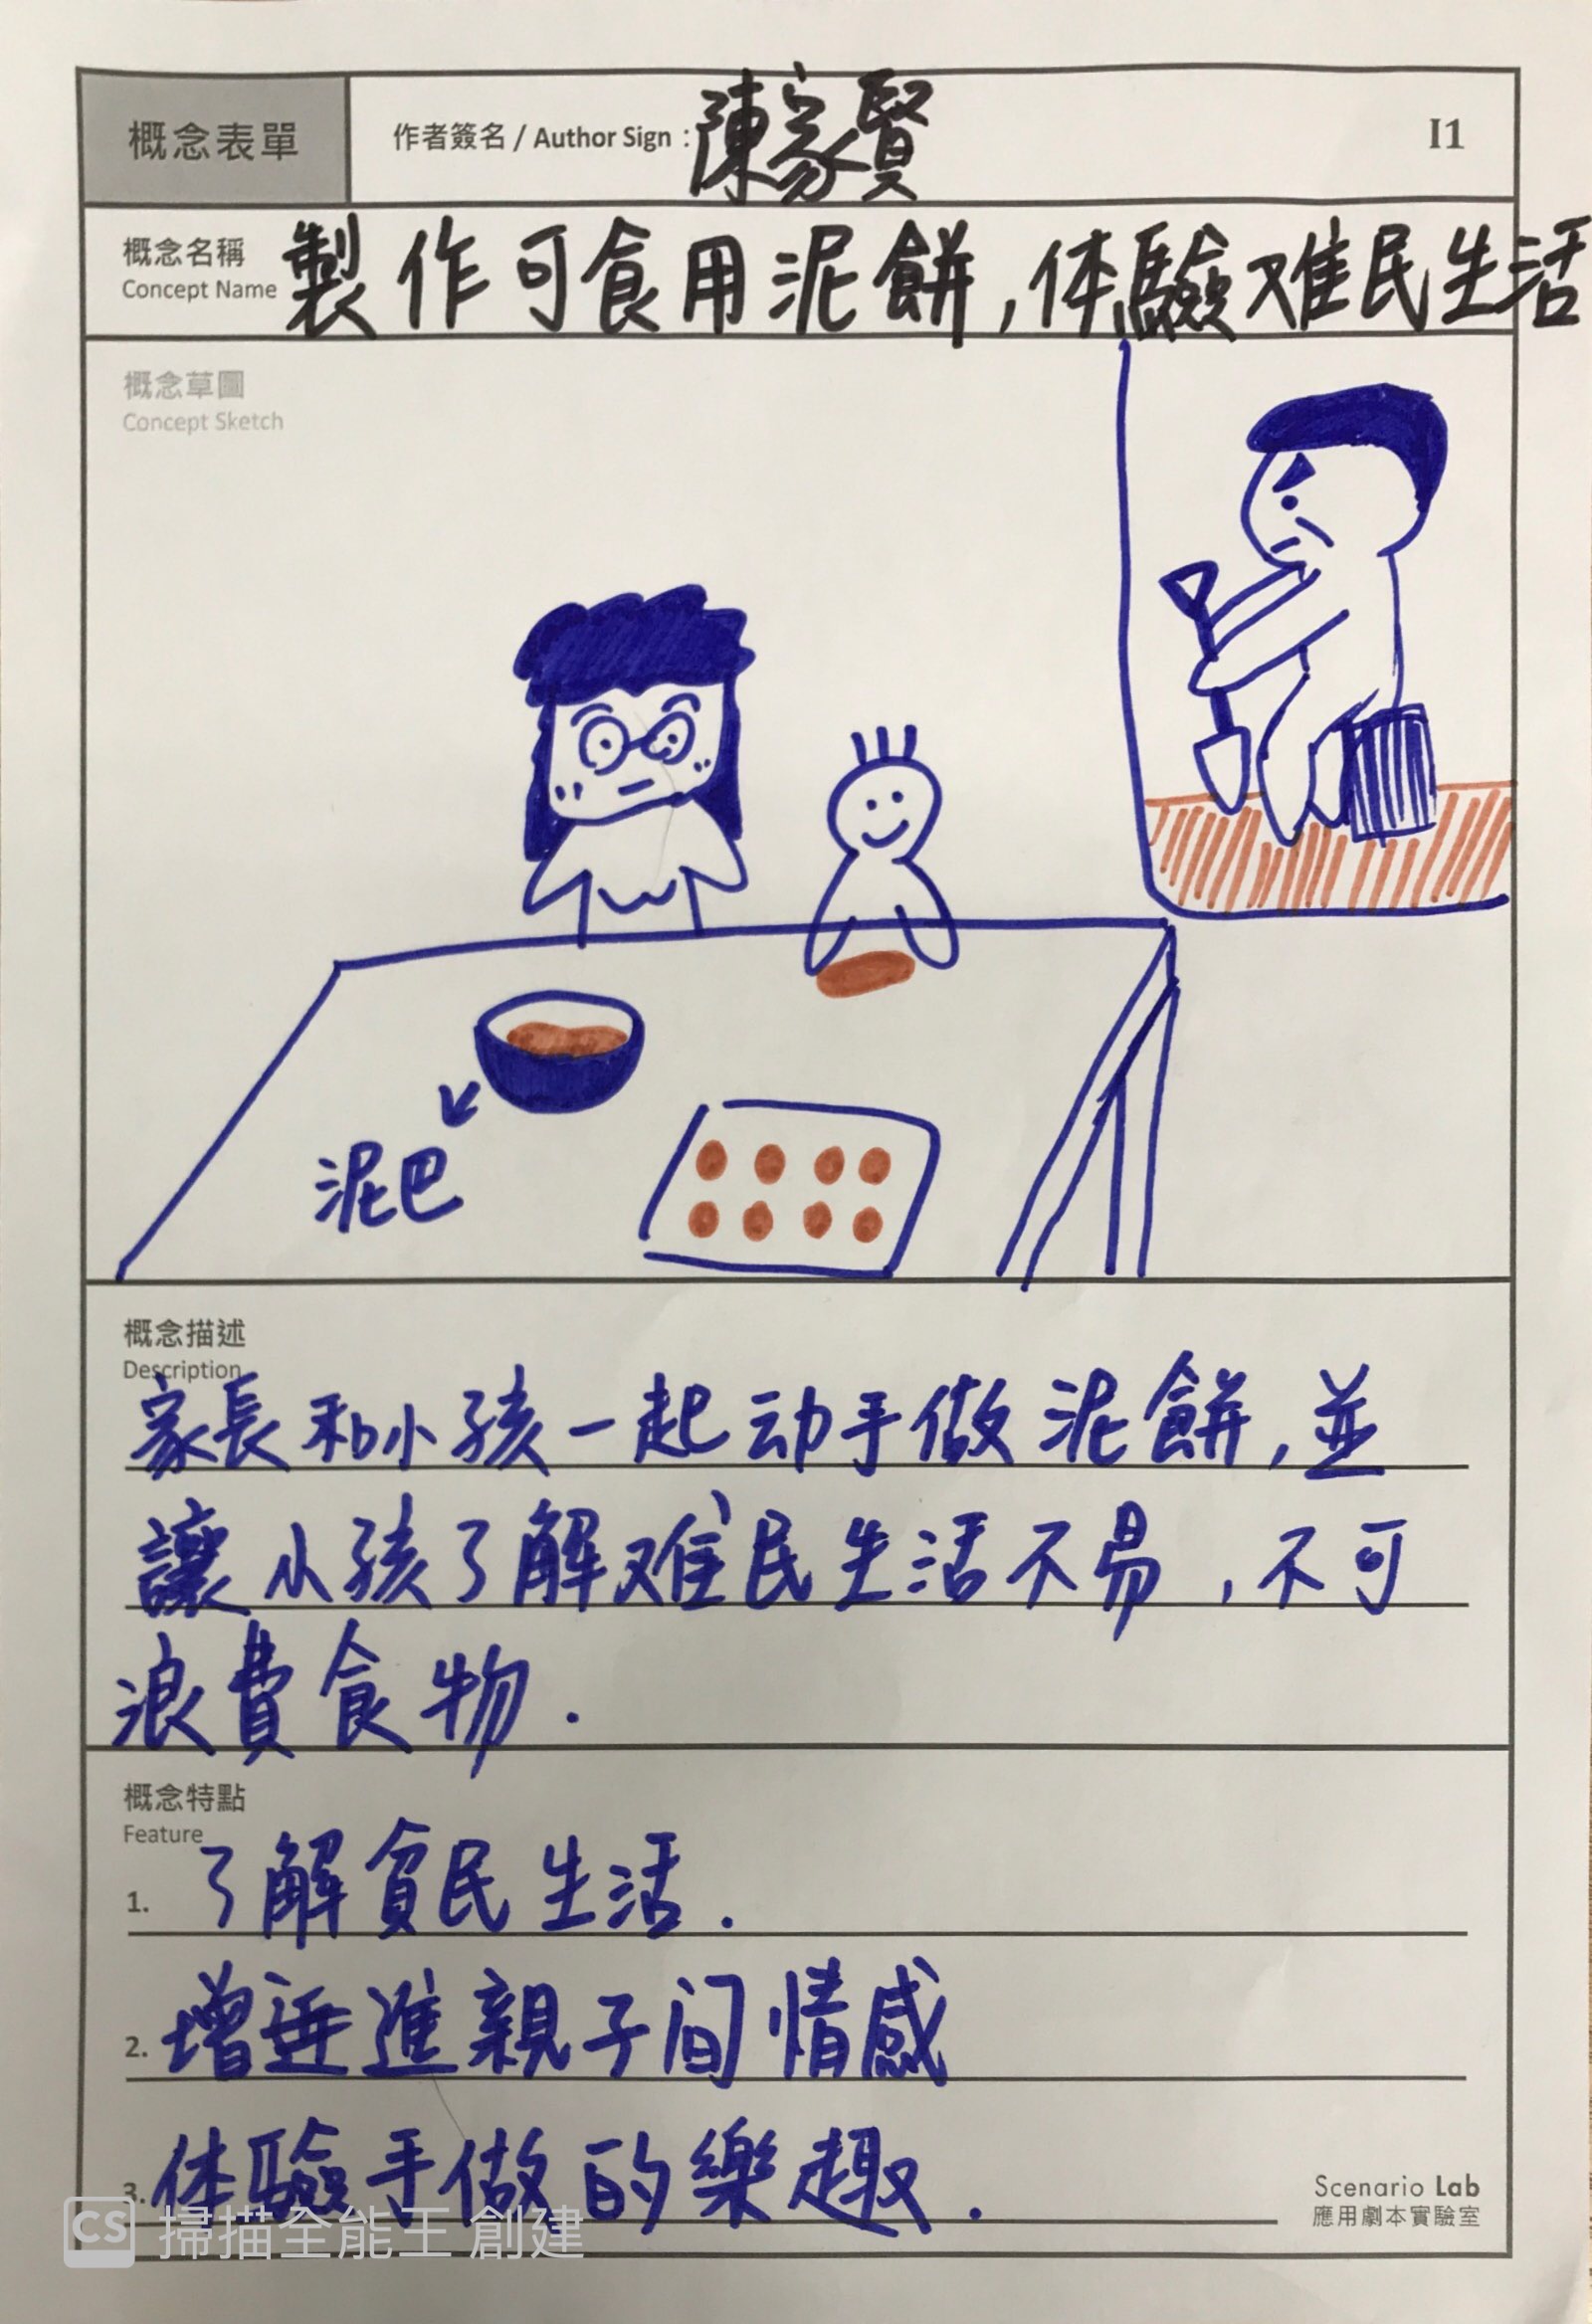 概念表單
作者簽名 / Author Sign : 陳家賢
I1
概念名稱
Concept Name
製作可食用泥餅,体驗难民生活
概念草圖
Concept Sketch
泥巴
概念描述
Description
家長和小孩一起动手做泥餅,並
讓小孩了解难民生活不易,不可
浪費食物.
概念特點
Feature
1. 了解貧民生活.
2. 增進親子间情感
3. 体驗手做的樂趣.
Scenario Lab
應用劇本實驗室
CS 掃描全能王 創建